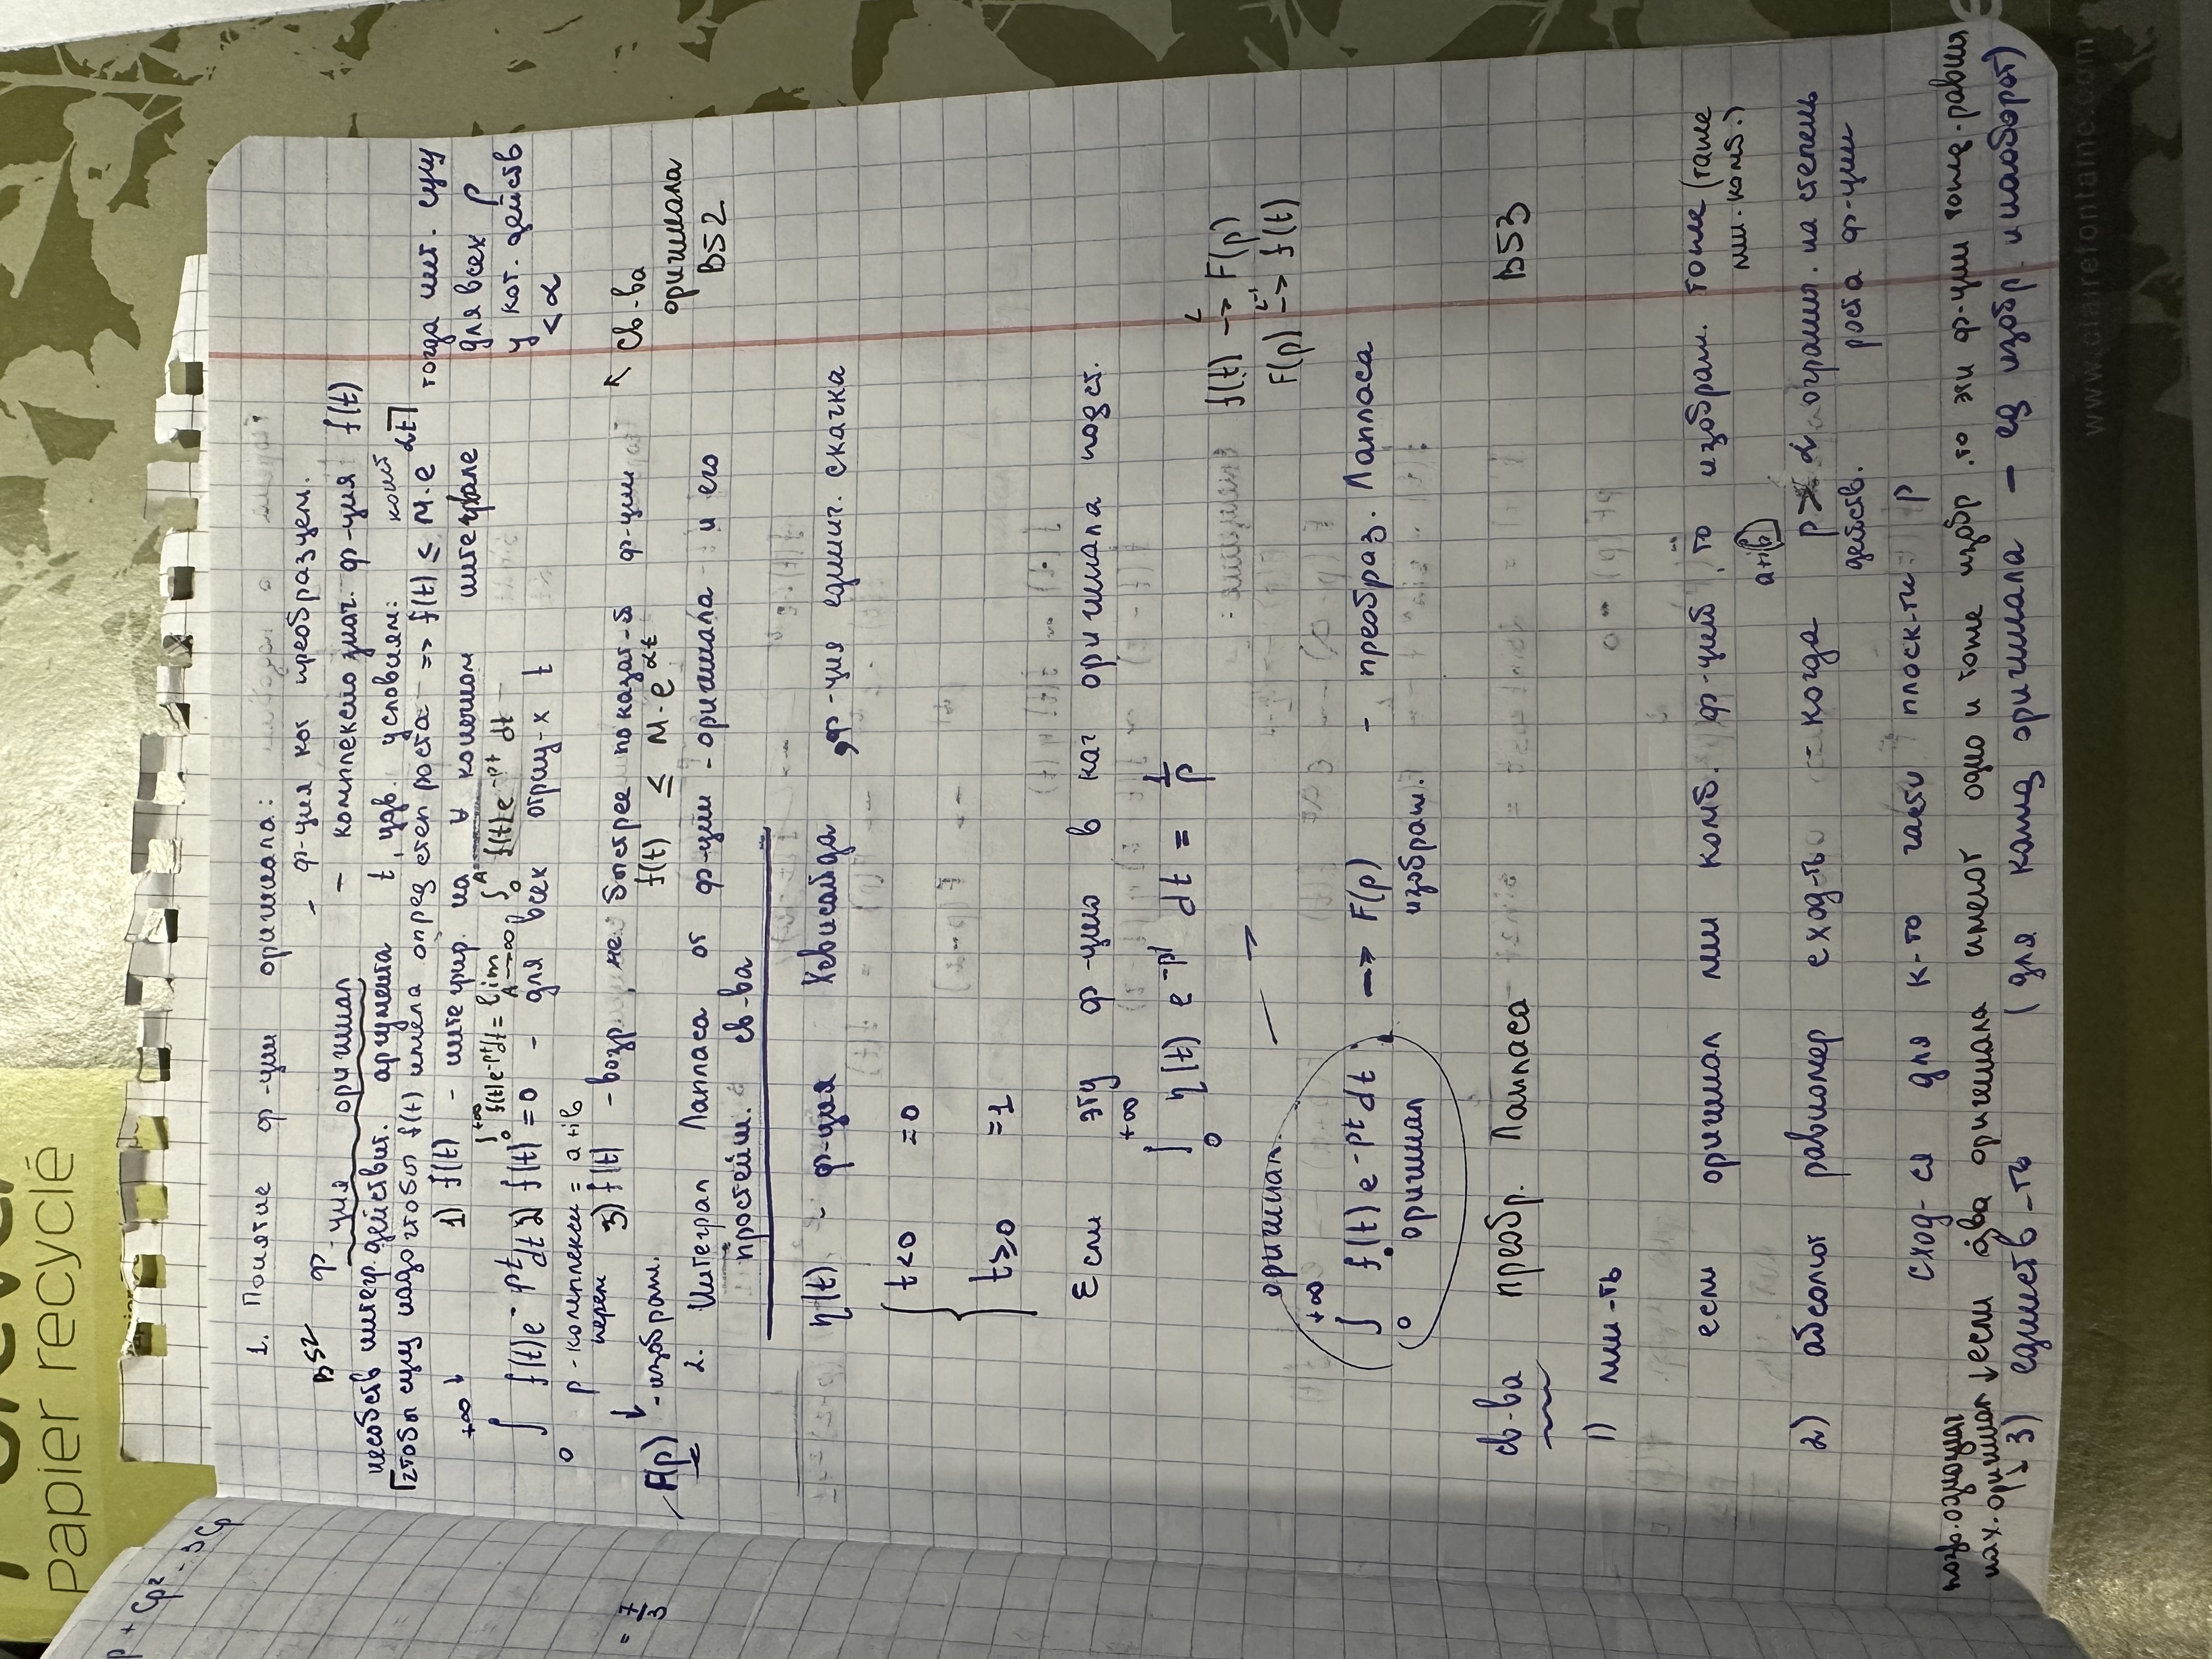 Forever
Papier recyclé
p + Cp² - 3Cp
1. Понятие ф-ции оригинала:
- ф-ция кот преобразуем.
B52 ф-ция оригинал - комплекснознач. ф-ция f(t)
несобств интегр. действит. аргумента t, удв. условиям: конст
чтобы сущ надо чтобы f(t) имела опред степ роста => f(t) ≤ M·e^{αt} тогда инт. сущ
1) f(t) - интегрир. на ∀ конечном интервале для всех p
∫₀^{+∞} f(t)e^{-pt}dt = lim_{A→∞} ∫₀^A f(t)e^{-pt} dt
у кот. действ < α
∫₀^{+∞} f(t)e^{-pt}dt 2) f(t) = 0 - для всех отриц-х t
p - комплексн = a+ib
перем
3) f(t) - возр. не быстрее показат-й ф-ции
f(t) ≤ M·e^{αt}
↓
F(p) - изображ.
↖ Св-ва
оригинала
B52
2. Интеграл Лапласа от ф-ции - оригинала и его
простейш. св-ва
η(t) - ф-ция Хевисайда, ф-ция единич. скачка
t<0 =0
t≥0 =1
Если эту ф-цию в кач оригинала подст.
∫₀^{+∞} η(t) e^{-pt} dt = 1/p
f(t) -L-> F(p)
F(p) -L⁻¹-> f(t)
оригинал. —→
∫₀^{+∞} f(t)e^{-pt}dt -> F(p) - преобраз. Лапласа
оригинал изображ.
св-ва преобр. Лапласа B53
1) лин-ть
если оригинал лин комб. ф-ций, то изображ. тоже (таже
лин. комб.)
a+ib
2) абсолют равномер сход-ть - когда p > α огранич. на степень
действ. роста ф-ции
сход-ся для к-то части плоск-ти p
позв. однознач
нах. оригинал ↓ если два оригинала имеют одно и тоже изобр. то эти ф-ции тожд. равны
3) единств-ть (для кажд оригинала - ед изобр. и наоборот)
www.clairefontaine.com